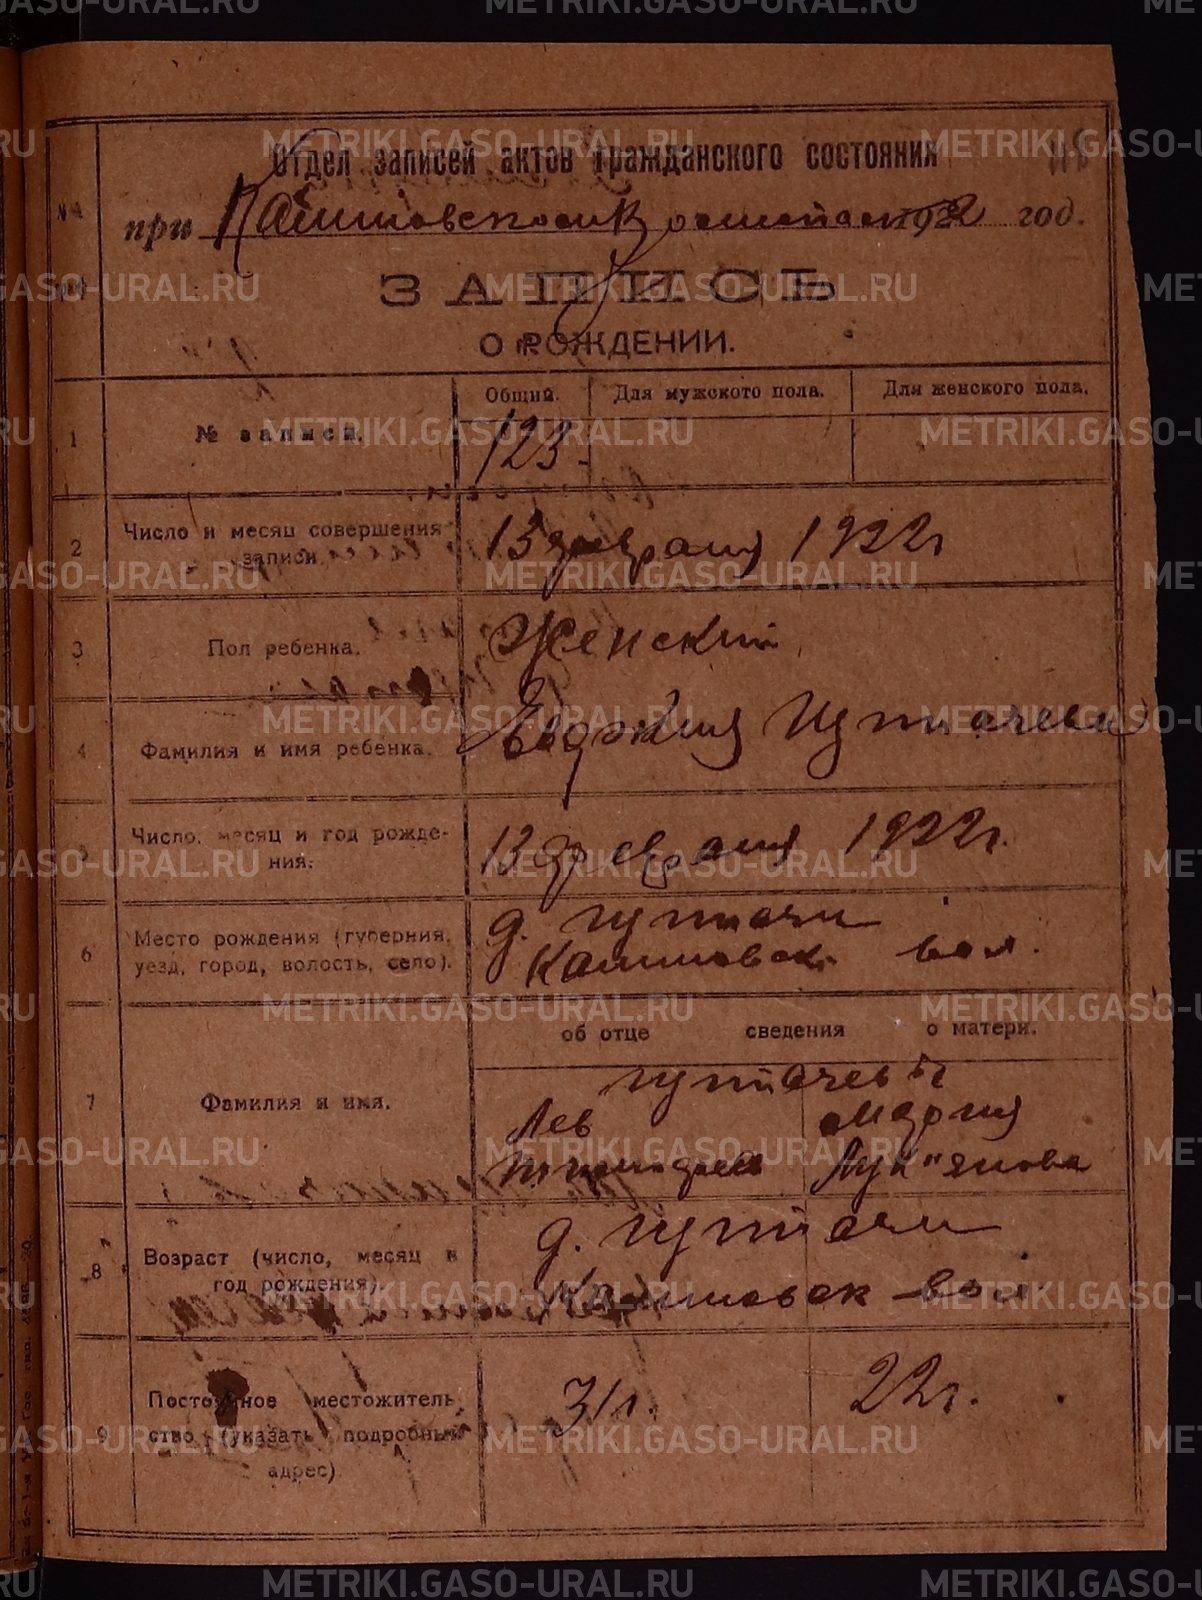 Отдел записей актов гражданского состояния
при 1922 год.
ЗАПИСЬ
О РОЖДЕНИИ.
Общий. Для мужского пола. Для женского пола.
1 № записи. 123.
2 Число и месяц совершения записи. 15 февраля 1922 г
3 Пол ребенка. Женский
4 Фамилия и имя ребенка.
5 Число, месяц и год рождения: 13 февраля 1922 г.
6 Место рождения (губерния, уезд, город, волость, село). д. вол.
об отце сведения о матери.
7 Фамилия и имя.
Лев Мария
Лук"янова
8 Возраст (число, месяц и год рождения). д.
вол
9 Постоянное местожительство (указать подробный адрес) 31 г. 22 г.
METRIKI.GASO-URAL.RU